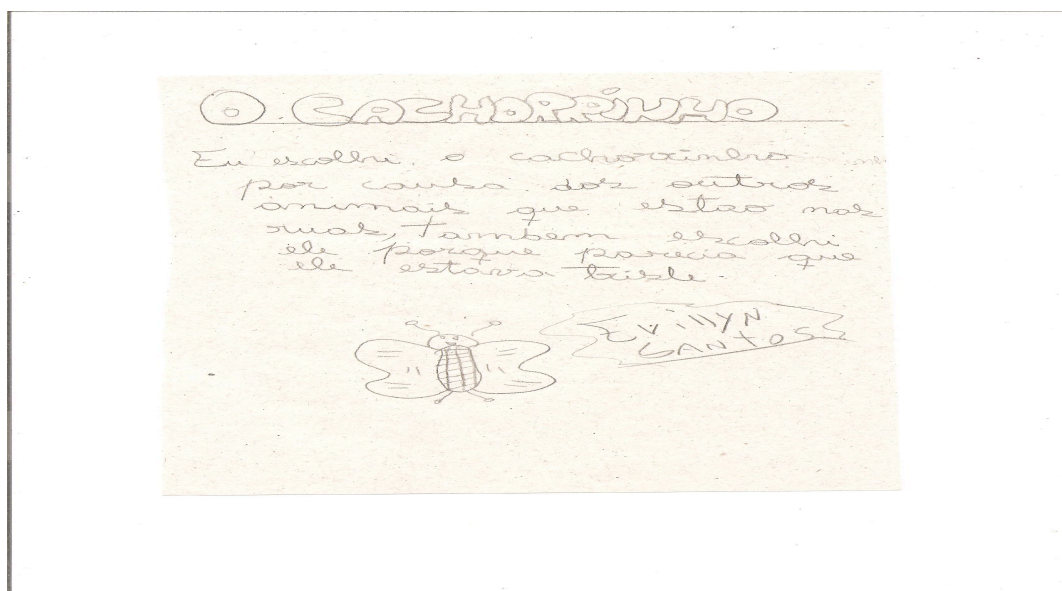 O CACHORRINHO
Eu escolhi o cachorrinho
por causa dos outros
animais que estao nas
ruas, Também escolhi
ele porque parecia que
ele estava triste.
Evillyn
SANTOS